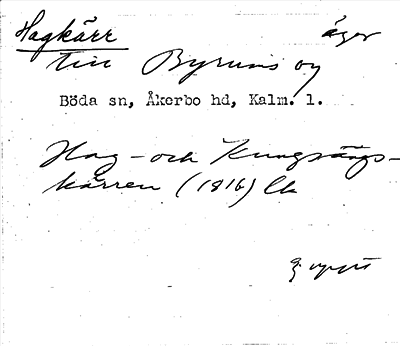 Hagkärr äger
till Byrums oy
Böda sn, Åkerbo hd, Kalm. l.
Hag- och Kungsängs-
kärren (1816) Ck
Ej uppt